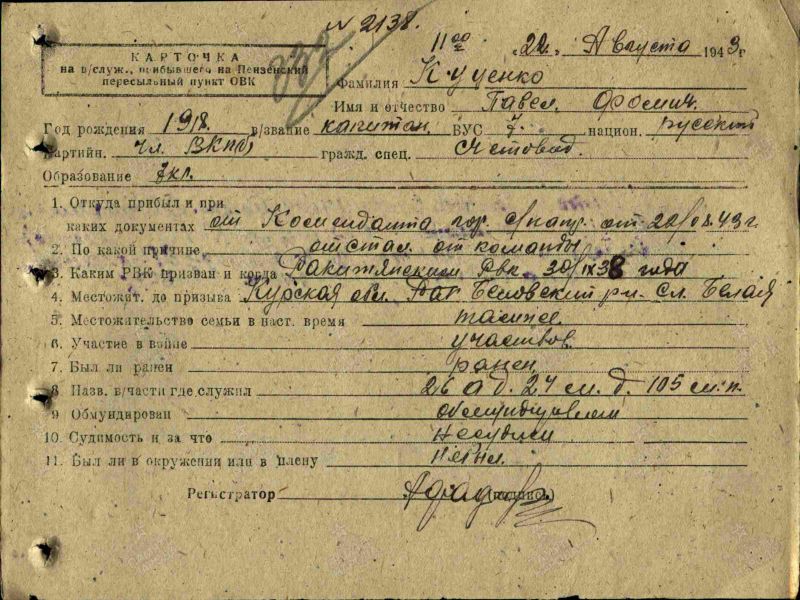 N 2138.
11 00 "22" Августа 1943 г
КАРТОЧКА
на в/служ., прибывшего на Пензенский
пересыльный пункт ОВК
Фамилия Куценко
Имя и отчество Павел Фомич.
Год рождения 1918. в/звание капитан. ВУС 7. национ. русский
Партийн. чл. ВКП(б) гражд. спец. Счетовод.
Образование 7 кл.
1. Откуда прибыл и при
каких документах от Коменданта гор. с/напр. от 22/08.43 г.
2. По какой причине отстал от команды
3. Каким РВК призван и когда Ракитянским Рвк 30/IX 38 года
4. Местожит. до призыва Курская обл. Беловский рн. сл. Белая
5. Местожительство семьи в наст. время тоже
6. Участие в войне участвов.
7. Был ли ранен ранен
8 Назв. в/части где служил 26 а д. 27 см. д. 105 сп. п.
9 Обмундирован обмундирован
10. Судимость и за что несудим
11. Был ли в окружении или в плену не был.
Регистратор (подпись)